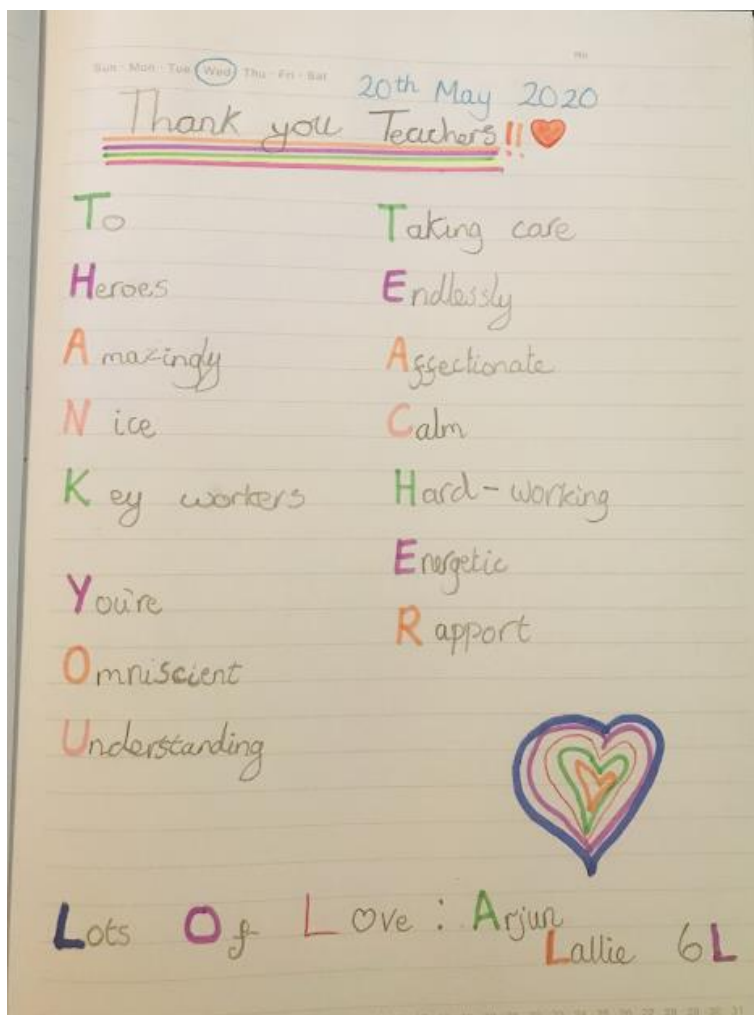 No
Sun · Mon · Tue · Wed · Thu · Fri · Sat
20th May 2020
Thank you Teachers!!
To
Heroes
Amazingly
Nice
Key workers
You're
Omniscient
Understanding
Taking care
Endlessly
Affectionate
Calm
Hard-working
Energetic
Rapport
Lots Of Love : Arjun
Lallie 6L